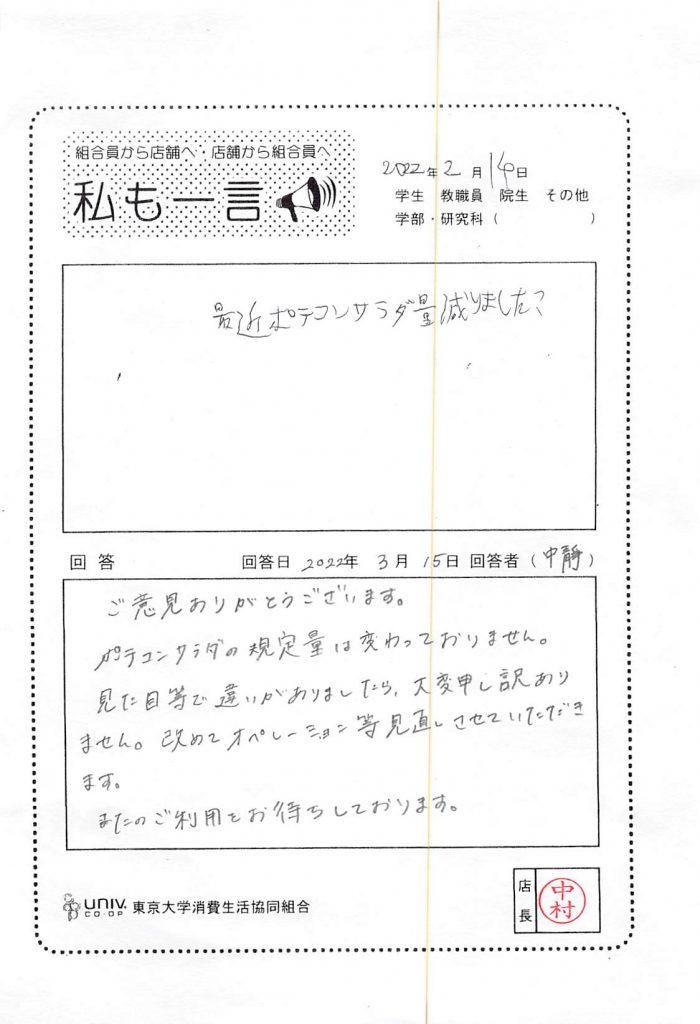 組合員から店舗へ・店舗から組合員へ
私も一言
2022年2月14日
学生 教職員 院生 その他
学部・研究科( )
最近ポテコンサラダ量減りました?
回答 回答日 2022年 3月 15日 回答者(中静)
ご意見ありがとうございます。
ポテコンサラダの規定量は変わっておりません。
見た目等で違いがありましたら、大変申し訳あり
ません。改めてオペレーション等見直しさせていただき
ます。
またのご利用をお待ちしております。
UNIV. CO-OP 東京大学消費生活協同組合
店長 中村